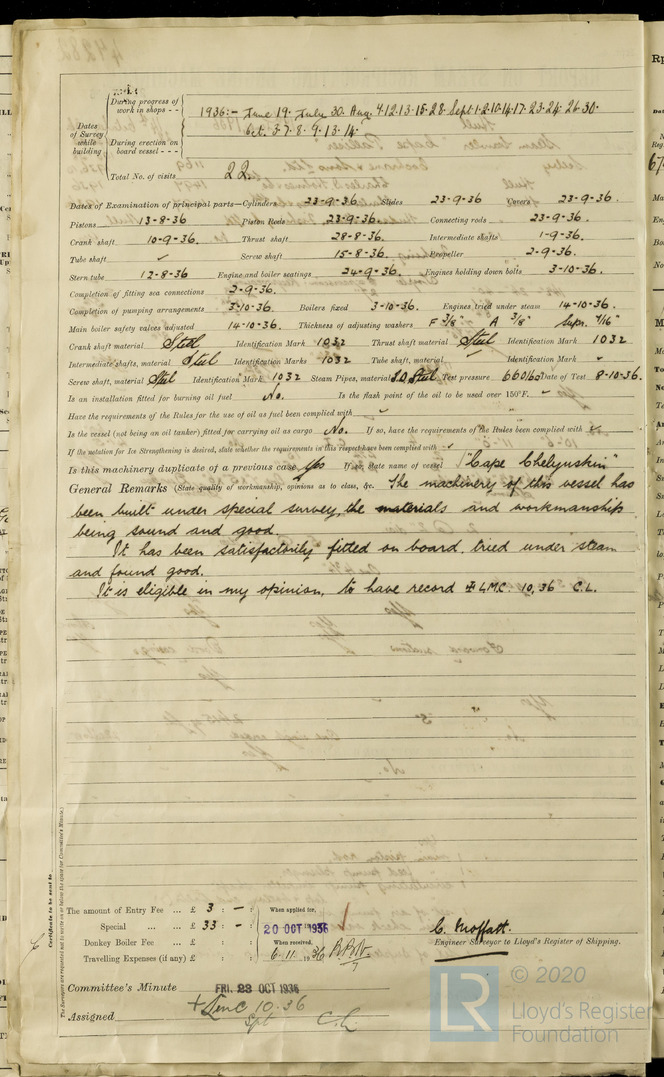 Dates of Survey while building
During progress of work in shops - - 1936:- June 19. July 30. Aug. 4.12.13.15.28. Sept.1.2.10.14.17.23.24.26.30.
During erection on board vessel - - - Oct. 3.7.8.9.13.14.
Total No. of visits 22.
Dates of Examination of principal parts—Cylinders 23-9-36 Slides 23-9-36 Covers 23-9-36.
Pistons 13-8-36 Piston Rods 23-9-36. Connecting rods 23-9-36.
Crank shaft 10-9-36. Thrust shaft 28-8-36. Intermediate shafts 1-9-36.
Tube shaft ✓ Screw shaft 15-8-36. Propeller 2-9-36.
Stern tube 12-8-36 Engine and boiler seatings 24-9-36. Engines holding down bolts 3-10-36.
Completion of fitting sea connections 2-9-36.
Completion of pumping arrangements 3-10-36. Boilers fixed 3-10-36. Engines tried under steam 14-10-36.
Main boiler safety valves adjusted 14-10-36. Thickness of adjusting washers F 3/8" A 3/8" Supr. 7/16"
Crank shaft material Steel Identification Mark 1032 Thrust shaft material Steel Identification Mark 1032
Intermediate shafts, material Steel Identification Marks 1032 Tube shaft, material ✓ Identification Mark ✓
Screw shaft, material Steel Identification Mark 1032 Steam Pipes, material S.D. Steel Test pressure 660 lbs Date of Test 8-10-36.
Is an installation fitted for burning oil fuel No. Is the flash point of the oil to be used over 150°F. ✓
Have the requirements of the Rules for the use of oil as fuel been complied with ✓
Is the vessel (not being an oil tanker) fitted for carrying oil as cargo No. If so, have the requirements of the Rules been complied with ✓
If the notation for Ice Strengthening is desired, state whether the requirements in this respect have been complied with ✓
Is this machinery duplicate of a previous case Yes If so, state name of vessel "Cape Chelyuskin"
General Remarks (State quality of workmanship, opinions as to class, &c. The machinery of this vessel has
been built under special survey, the materials and workmanship
being sound and good.
It has been satisfactorily fitted on board, tried under steam
and found good.
It is eligible in my opinion, to have record ✠ L.M.C. 10,36 C.L.
Certificate to be sent to
The Surveyors are requested not to write on or below the space for Committee's Minute.
The amount of Entry Fee ... £ 3 : - :
Special ... £ 33 : - :
Donkey Boiler Fee ... £ : :
Travelling Expenses (if any) £ : :
When applied for,
20 OCT 1936
When received,
6.11.1936
C. Moffatt.
Engineer Surveyor to Lloyd's Register of Shipping.
Committee's Minute FRI. 23 OCT 1936
Assigned + Lmc 10.36
C.L
LR
© 2020
Lloyd's Register
Foundation